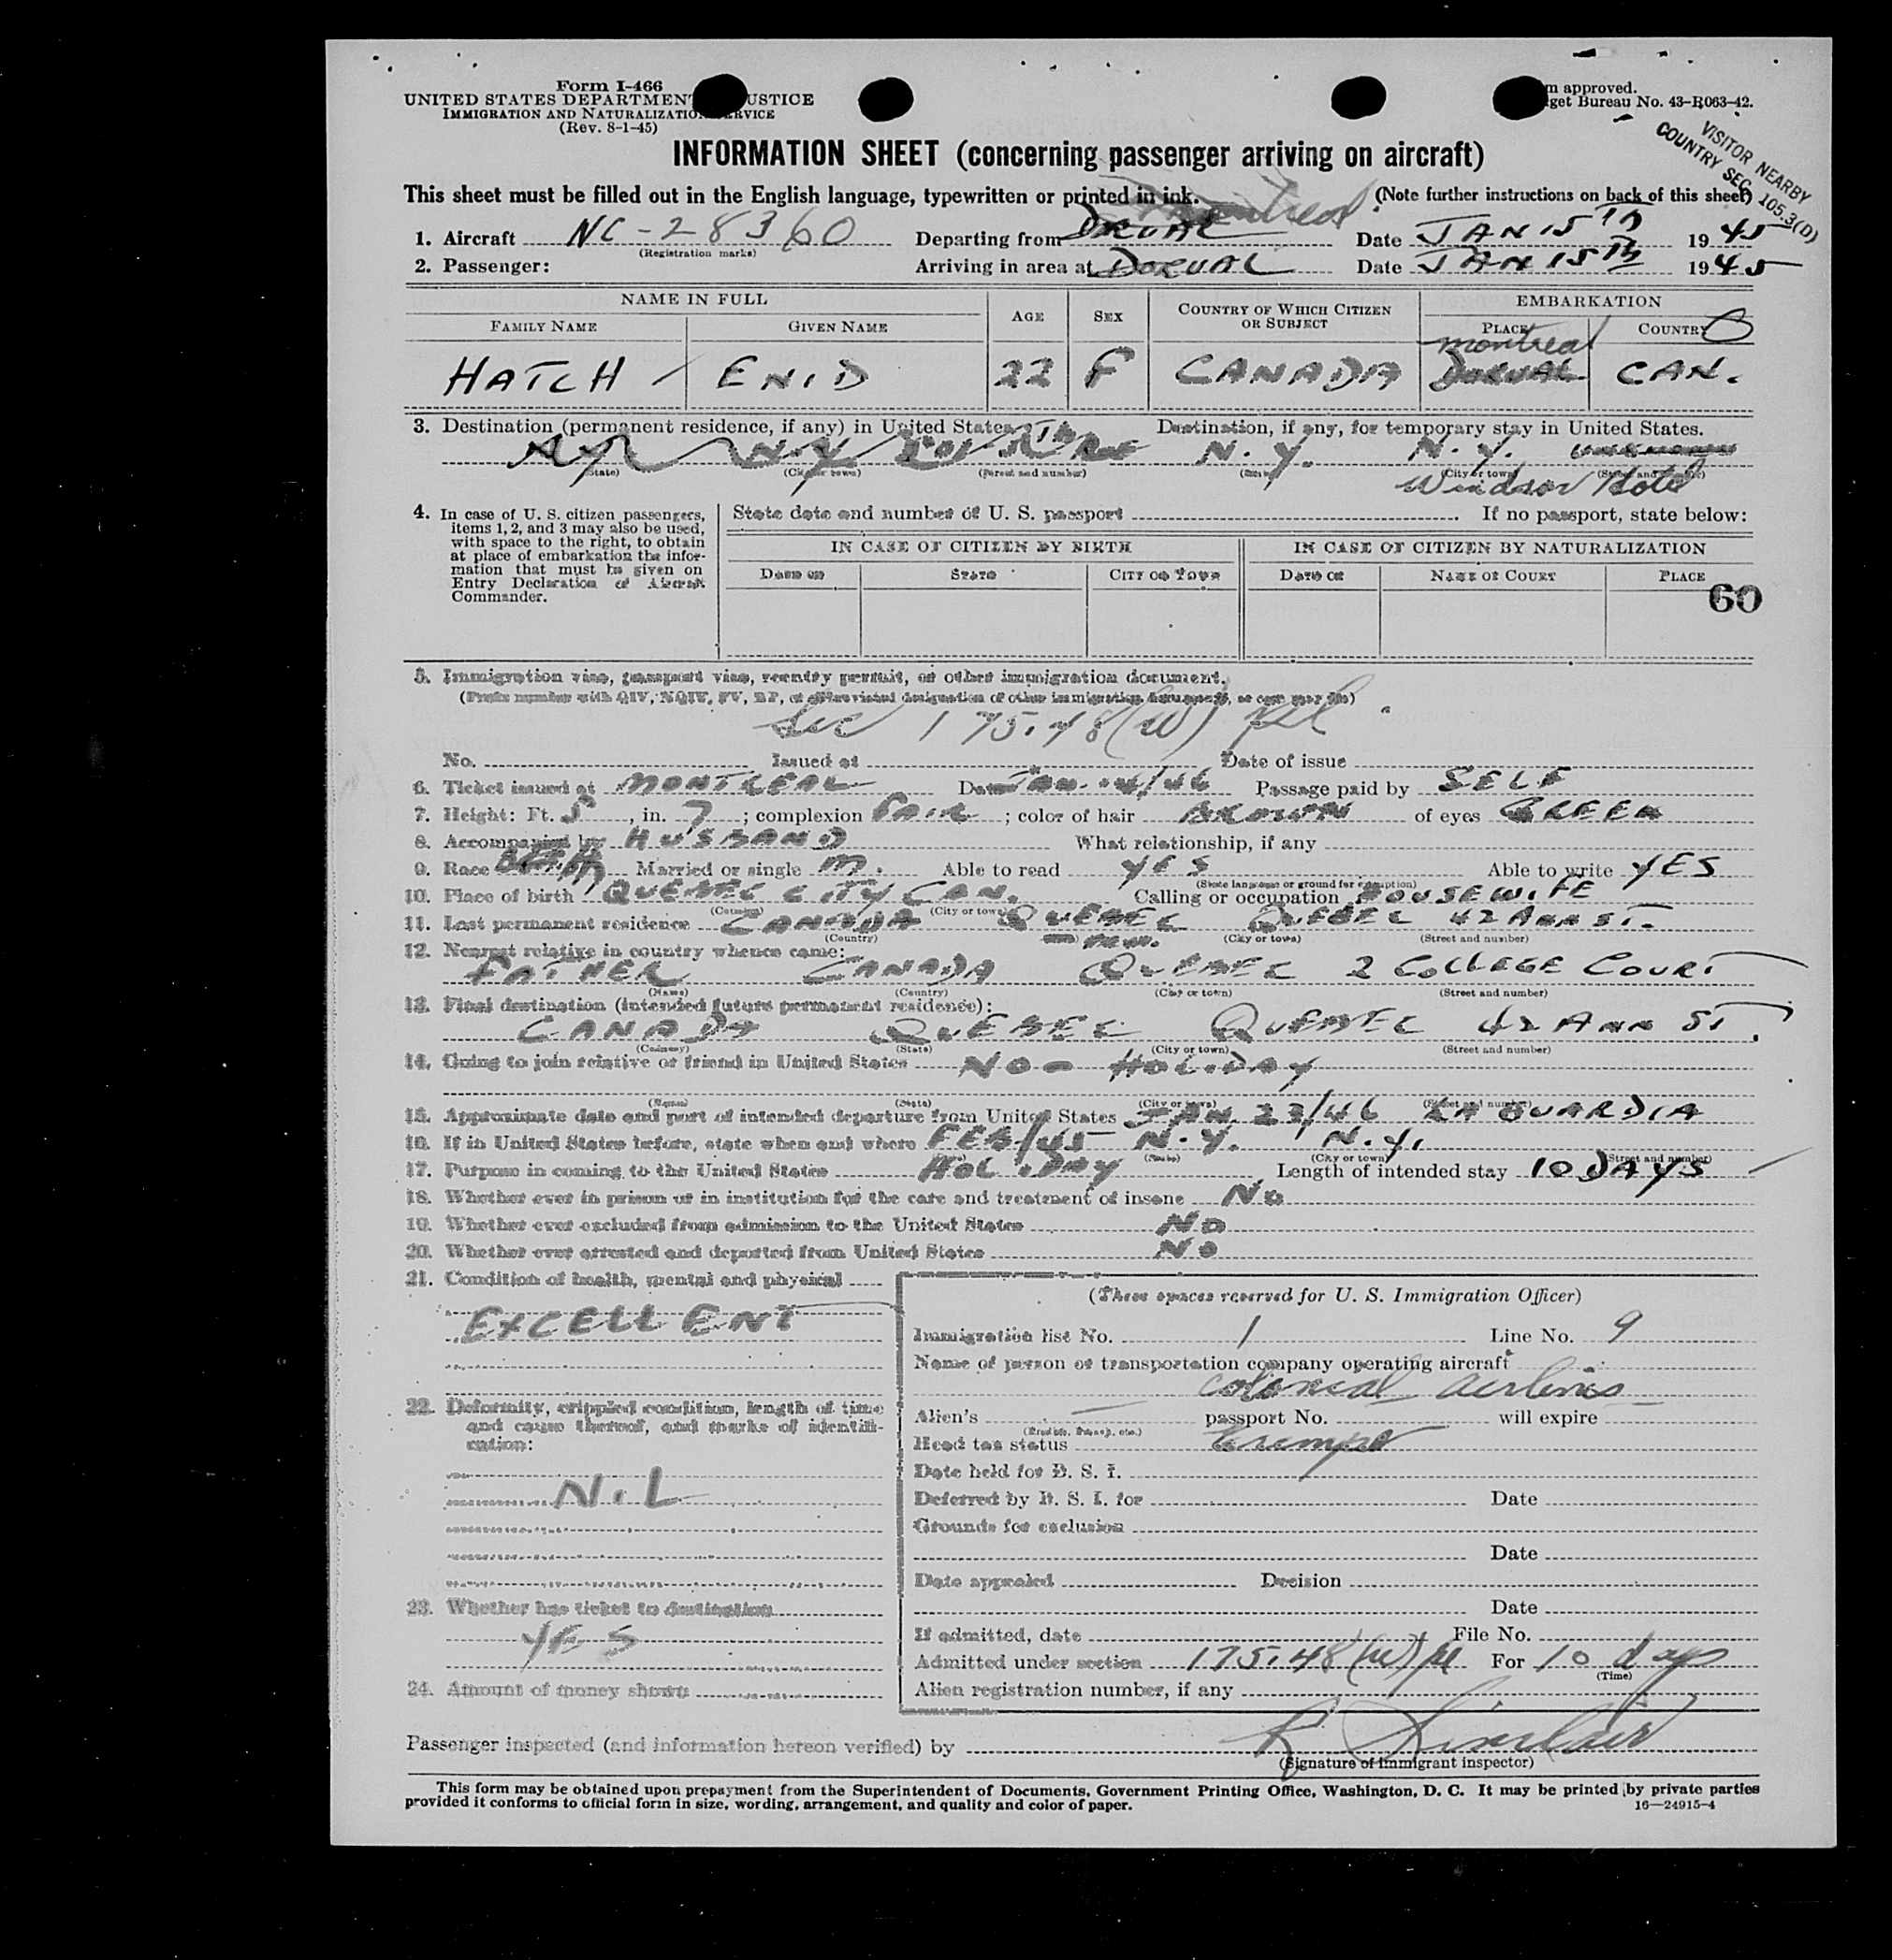 Form I-466
UNITED STATES DEPARTMENT JUSTICE
IMMIGRATION AND NATURALIZATION SERVICE
(Rev. 8-1-45)
approved.
get Bureau No. 43-R063-42.
VISITOR NEARBY
COUNTRY SEC 105.3(D)
INFORMATION SHEET (concerning passenger arriving on aircraft)
This sheet must be filled out in the English language, typewritten or printed in ink. (Note further instructions on back of this sheet)
Montreal
1. Aircraft NC-28360 Departing from DORVAL Date JAN 15TH 1945
(Registration marks)
2. Passenger: Arriving in area at DORVAL Date JAN 15TH 1945
NAME IN FULL AGE SEX COUNTRY OF WHICH CITIZEN OR SUBJECT EMBARKATION
FAMILY NAME GIVEN NAME PLACE COUNTRY
Montreal
HATCH ENID 22 F CANADA DORVAL CAN.
3. Destination (permanent residence, if any) in United States Destination, if any, for temporary stay in United States.
N.Y. N.Y. N.Y. UNKNOWN
(State) (City or town) (Street and number) (State) (City or town) (Street and number)
Windsor Hotel
4. In case of U. S. citizen passengers, items 1, 2, and 3 may also be used, with space to the right, to obtain at place of embarkation the information that must be given on Entry Declaration of Aircraft Commander.
State date and number of U. S. passport If no passport, state below:
IN CASE OF CITIZEN BY BIRTH IN CASE OF CITIZEN BY NATURALIZATION
DATE OF STATE CITY OR TOWN DATE OF NAME OF COURT PLACE
60
5. Immigration visa, passport visa, reentry permit, or other immigration document.
(Prefix number with QIV, NQIV, PV, RP, or abbreviated designation of other immigration document, as case may be)
Sec 175.48(W)
No. Issued at Date of issue
6. Ticket issued at MONTREAL Date JAN. 14/46 Passage paid by SELF
7. Height: Ft. 5, in. 7; complexion FAIR; color of hair BROWN of eyes GREEN
8. Accompanied by HUSBAND What relationship, if any
9. Race Married or single M. Able to read YES Able to write YES
(State language or ground for exemption)
10. Place of birth QUEBEC CITY CAN. Calling or occupation HOUSEWIFE
(Country) (City or town)
11. Last permanent residence CANADA QUEBEC QUEBEC 42 ANN ST.
(Country) (City or town) (Street and number)
12. Nearest relative in country whence came:
FATHER CANADA QUEBEC 2 COLLEGE COURT
(Name) (Country) (City or town) (Street and number)
13. Final destination (intended future permanent residence):
CANADA QUEBEC QUEBEC 42 ANN ST.
(Country) (State) (City or town) (Street and number)
14. Going to join relative or friend in United States NO - HOLIDAY
(Name) (State) (City or town) (Street and number)
15. Approximate date and port of intended departure from United States JAN. 23/46 LA GUARDIA
16. If in United States before, state when and where FEB/45 N.Y. N.Y.
(State) (City or town) (Street and number)
17. Purpose in coming to the United States HOLIDAY Length of intended stay 10 DAYS
18. Whether ever in prison or in institution for the care and treatment of insane NO
19. Whether ever excluded from admission to the United States NO
20. Whether ever arrested and deported from United States NO
21. Condition of health, mental and physical
EXCELLENT
22. Deformity, crippled condition, length of time and cause thereof, and marks of identification:
NIL
23. Whether has ticket to destination
YES
24. Amount of money shown
(These spaces reserved for U. S. Immigration Officer)
Immigration list No. 1 Line No. 9
Name of person or transportation company operating aircraft
Colonial Airlines
Alien's passport No. will expire
Head tax status Exempt
Date held for B. S. I.
Deferred by B. S. I. for Date
Grounds for exclusion
Date
Date appealed Decision
Date
If admitted, date File No.
Admitted under section 175.48(W) For 10 days
(Time)
Alien registration number, if any
Passenger inspected (and information hereon verified) by R Sinclair
(Signature of immigrant inspector)
This form may be obtained upon prepayment from the Superintendent of Documents, Government Printing Office, Washington, D. C. It may be printed by private parties
provided it conforms to official form in size, wording, arrangement, and quality and color of paper. 16—24915-4